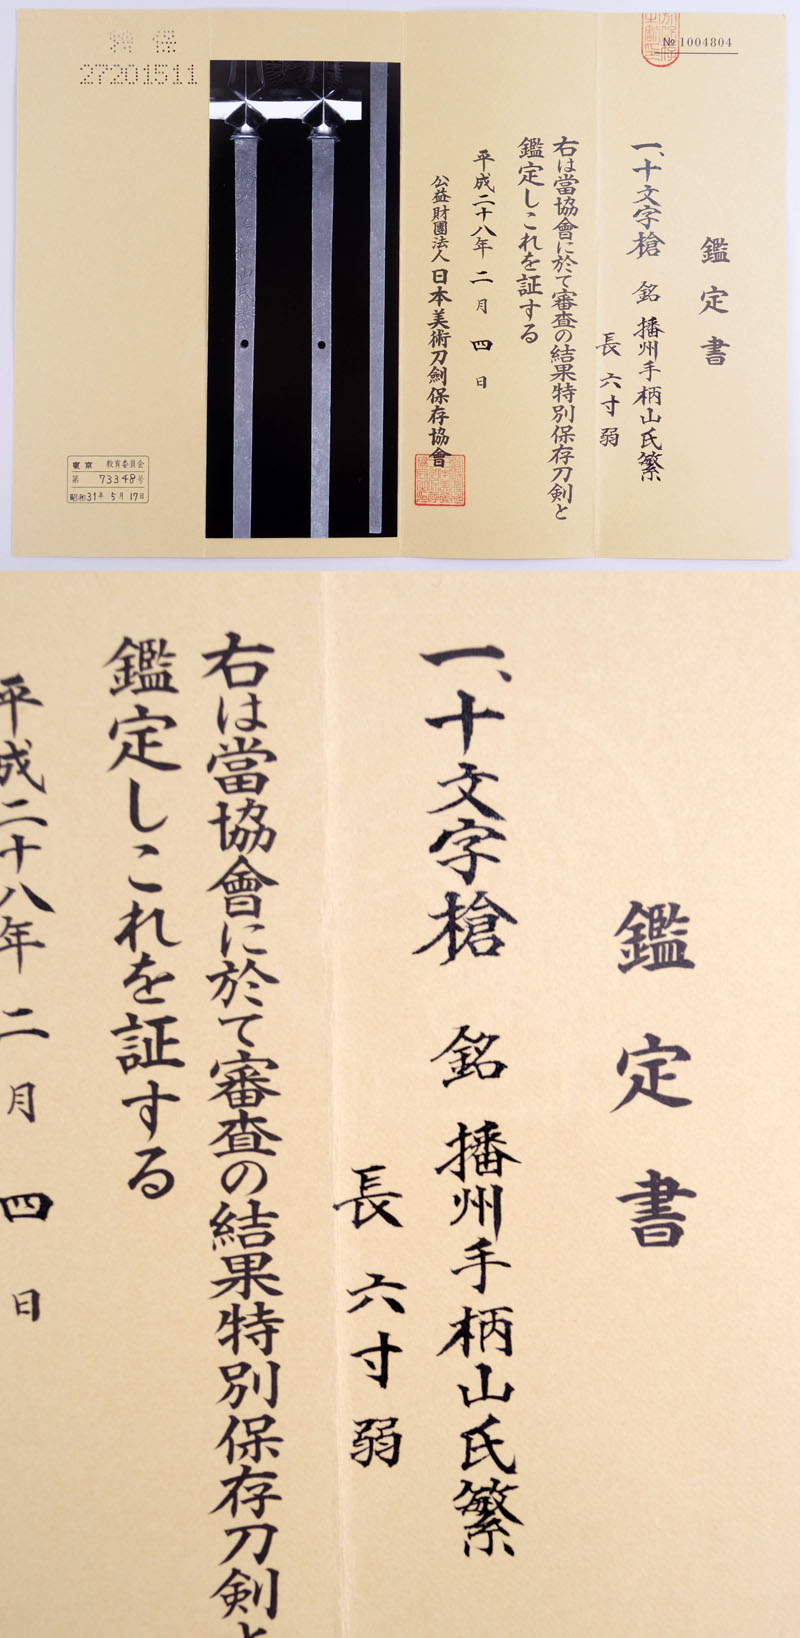 № 1004804
鑑定書
一、十文字槍 銘 播州手柄山氏繁
長六寸弱
右は當協會に於て審査の結果特別保存刀剣と
鑑定しこれを証する
平成二十八年二月四日
公益財團法人 日本美術刀劍保存協會
特保
27201511
東京 教育委員会
第 73348号
昭和31年 5月 17日
鑑定書
一、十文字槍 銘 播州手柄山氏繁
長六寸弱
右は當協會に於て審査の結果特別保存刀剣と
鑑定しこれを証する
平成二十八年二月四日